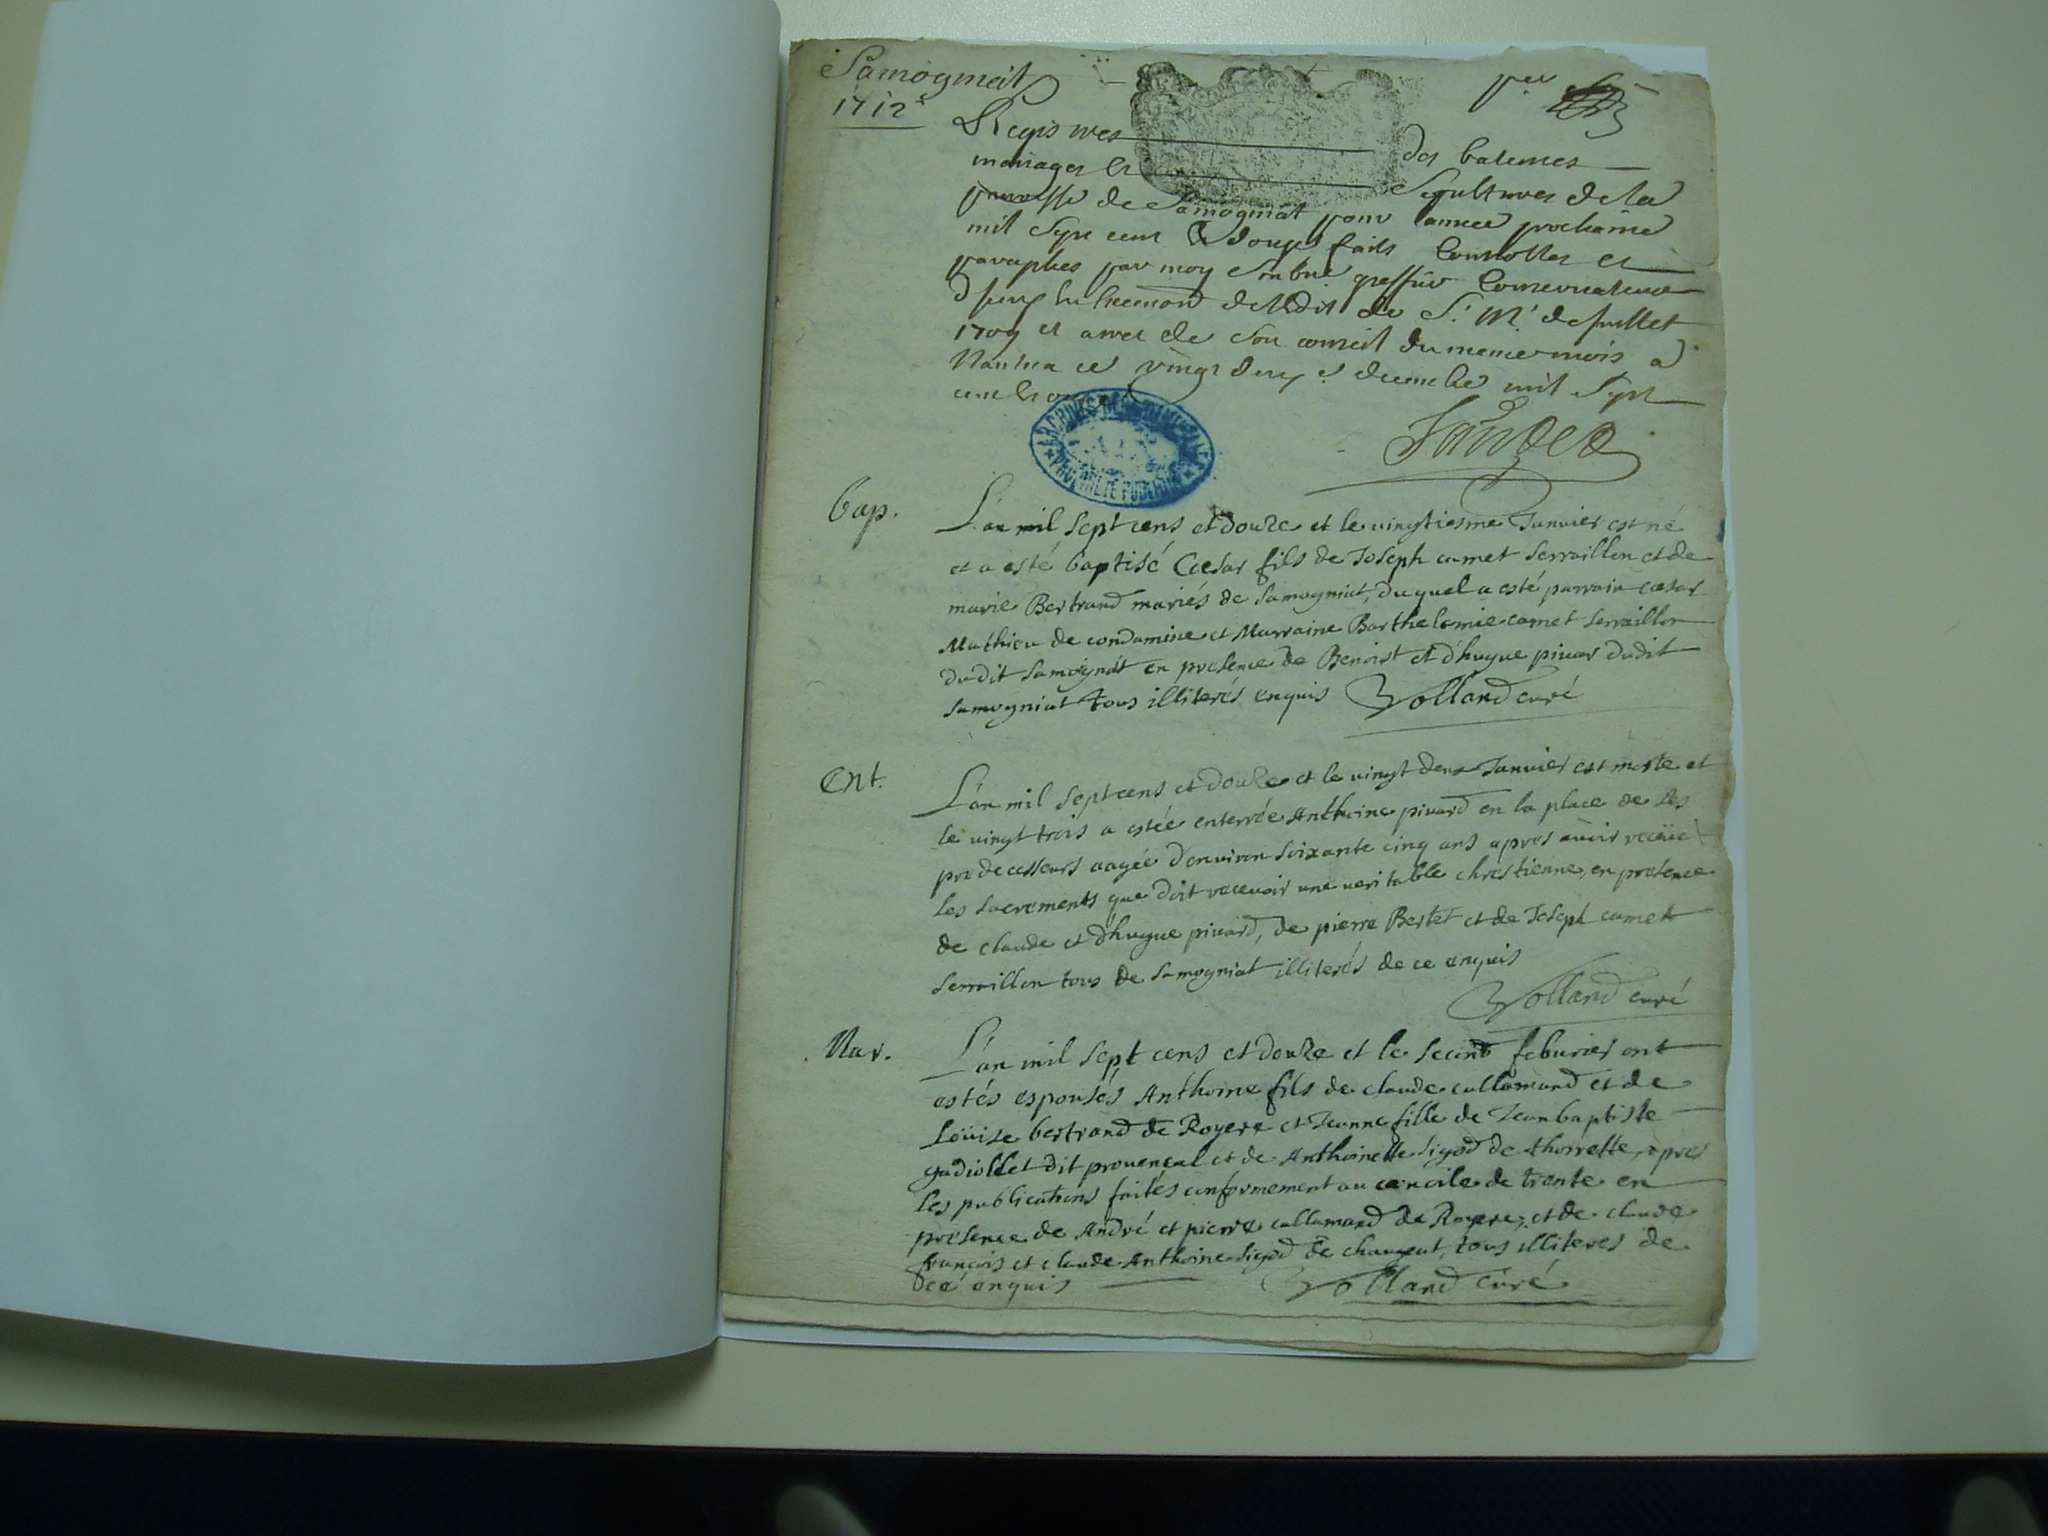 Samognat
1712
Registres des batemes
mariages et Sepultures de la
parroisse de Samognat pour lannee prochaine
mil Sept cent & douze faits Controller et
paraphes par moy greffier Conservateur
de Ledit de S. M. de Juillet
1709 et arret de Son conseil du meme mois a
Nantua ce vingt deux e decembre mil Sept
cent et onze
ARCHIVES DEPARTEMENTALES
AIN
PROPRIETE PUBLIQUE
Bap.
L'an mil sept cens et douze et le vingtiesme Januier est né
et a esté baptisé Cœsar fils de Joseph camet Serraillon et de
marie Bertrand mariés de Samogniat, duquel a esté parrain cœsar
Mathieu de condamine et Marraine Barthelemie camet serraillon
dudit Samognat en presence de Benoist et d'hugue piuar dudit
samogniat tous illiterés enquis Volland curé
Ent.
L'an mil sept cens et douze et le vingt deux Januier est morte et
le vingt trois a estée enterrée Anthoine piuard en la place de ses
predecesseurs aagée d'enuiron soixante cinq ans apres auoir receüe
les sacrements que doit receuoir une veritable chrestienne, en presence
de claude et d'hugue piuard, de pierre Bertet et de Joseph camet
serraillon tous de Samogniat illiterés de ce enquis
Volland curé
Mar.
L'an mil sept cens et douze et le second feburier ont
estés espousés Anthoine fils de claude callamand et de
Loüise bertrand de Royere et Jeanne fille de Jean baptiste
gadiollet dit prouençal et de Anthoinette sigod de thoirette, apres
les publications faites conformement au concile de trente en
presence de André et pierre callamand de Royere, et de claude
françois et claude Anthoine sigod de changeat, tous illiteres de
de ce enquis Volland curé